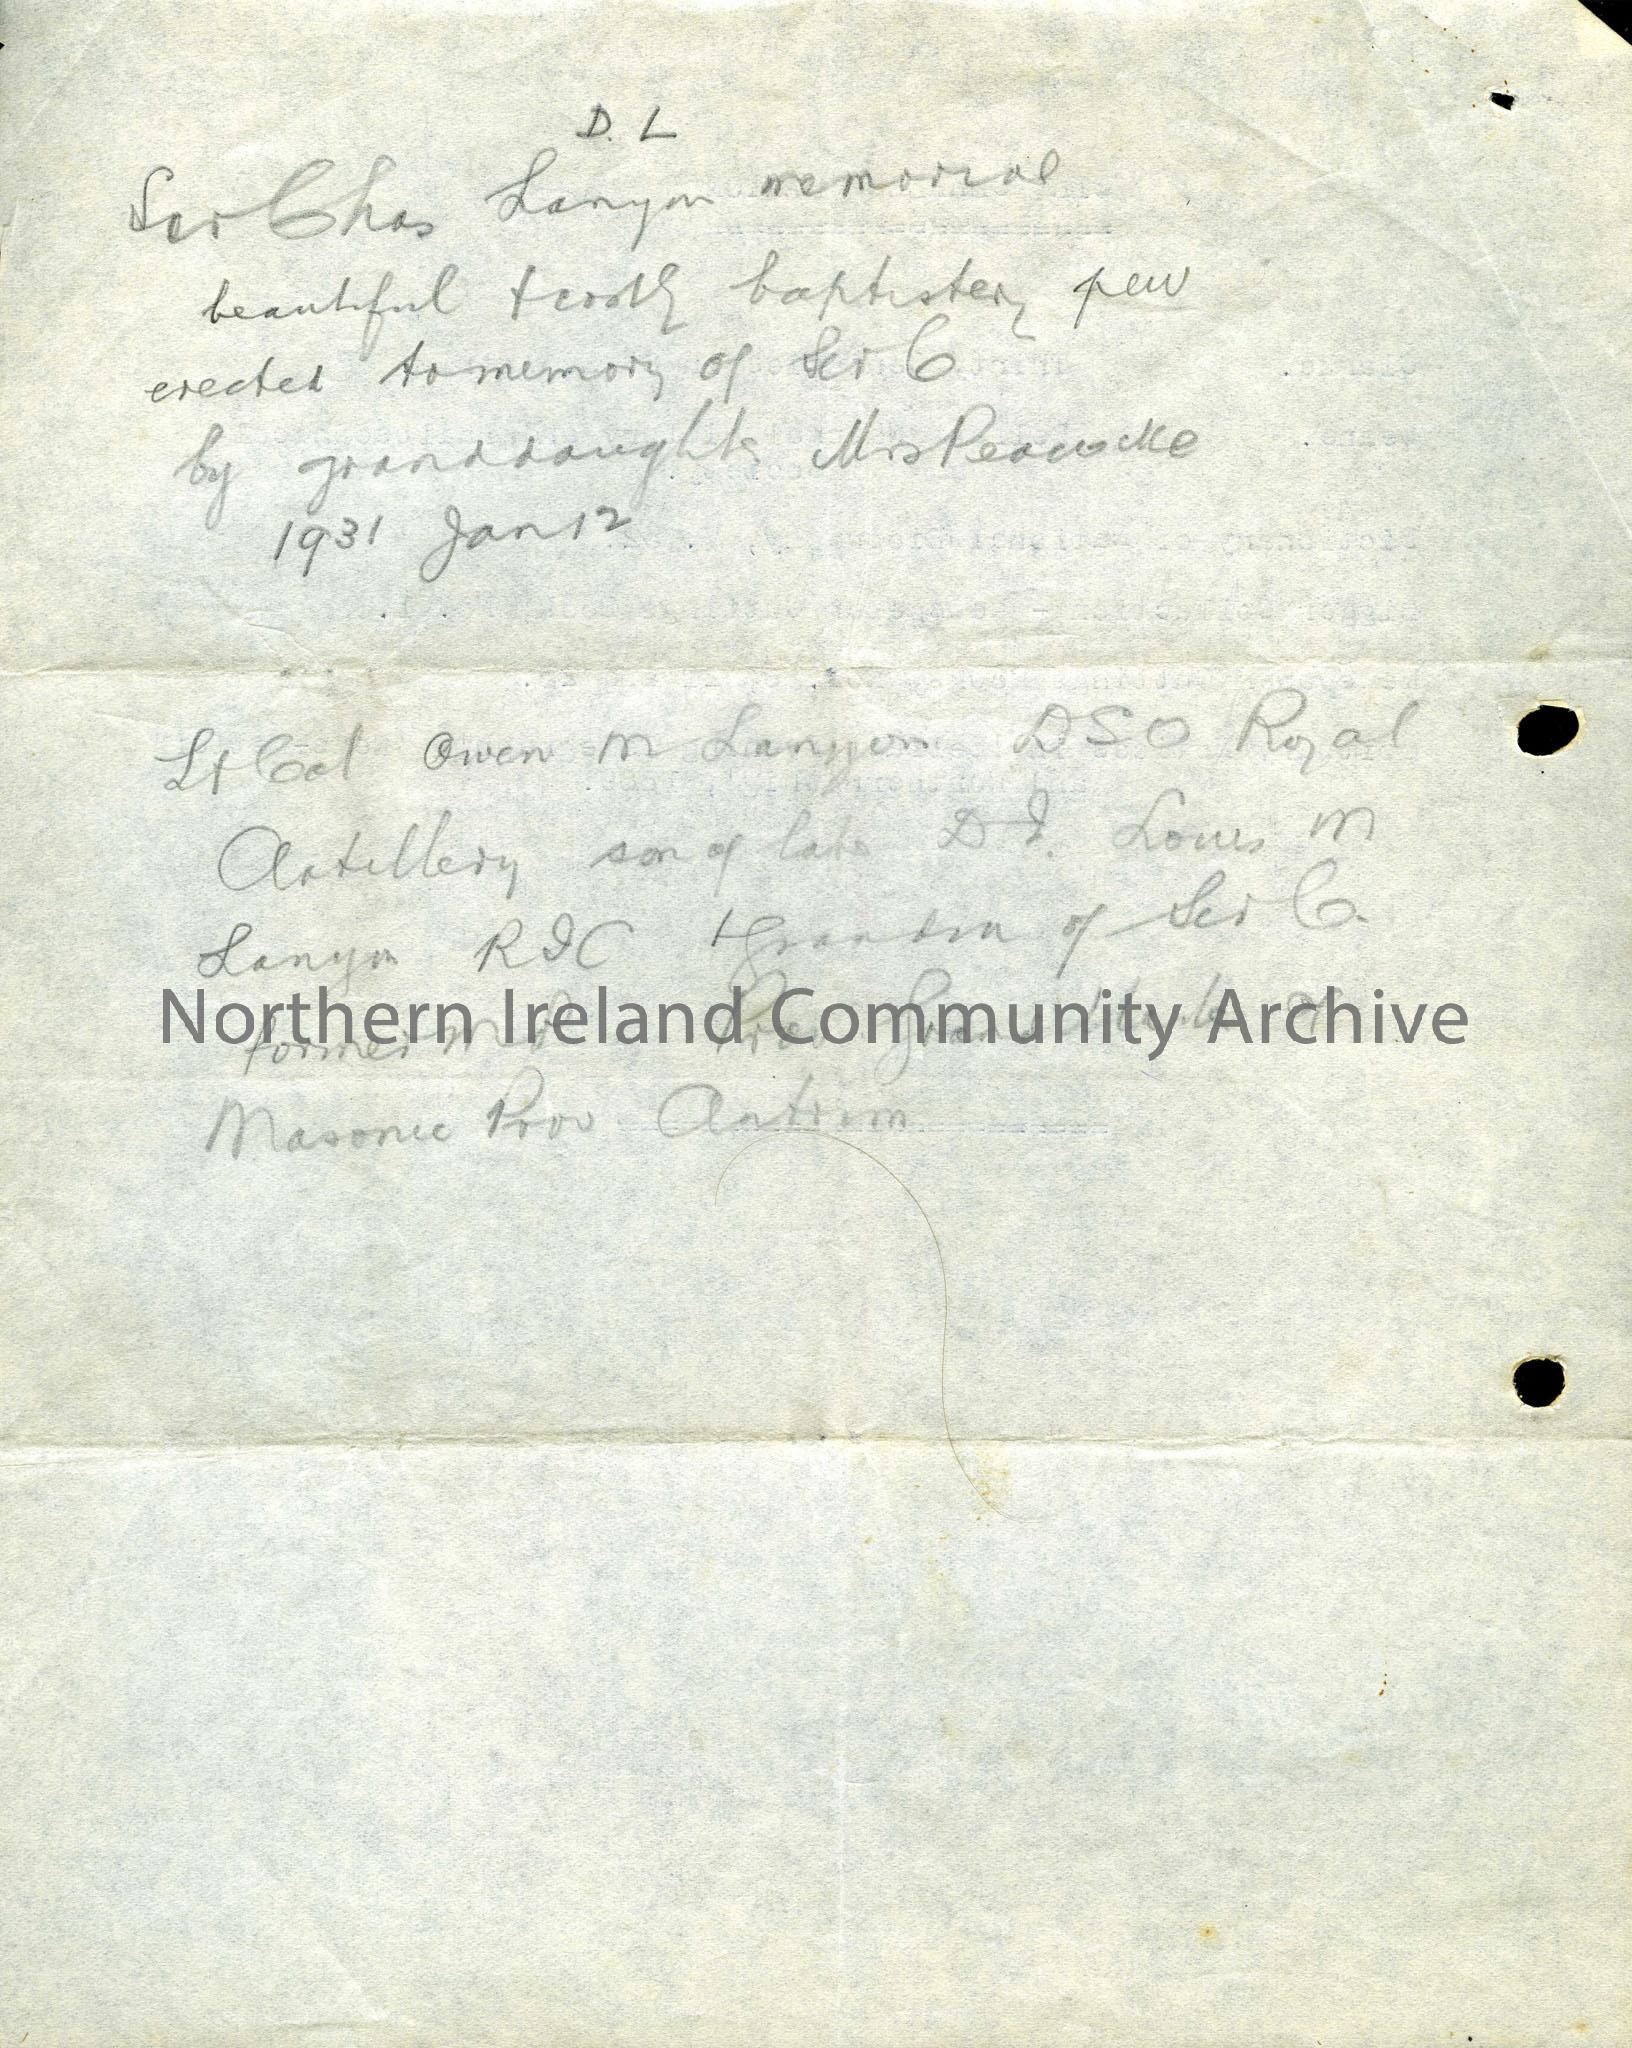 D. L
Sir Chas Lanyon memorial
beautiful & costly baptistery pew
erected to memory of Sir C
by granddaughter Mrs Peacocke
1931 Jan 12
Lt Col Owen M Lanyon DSO Royal
Artillery son of late D I. Louis M
Lanyon RIC & Grandson of Sir C.
Northern Ireland Community Archive
former M P Prov Grand of
Masonic Prov Antrim